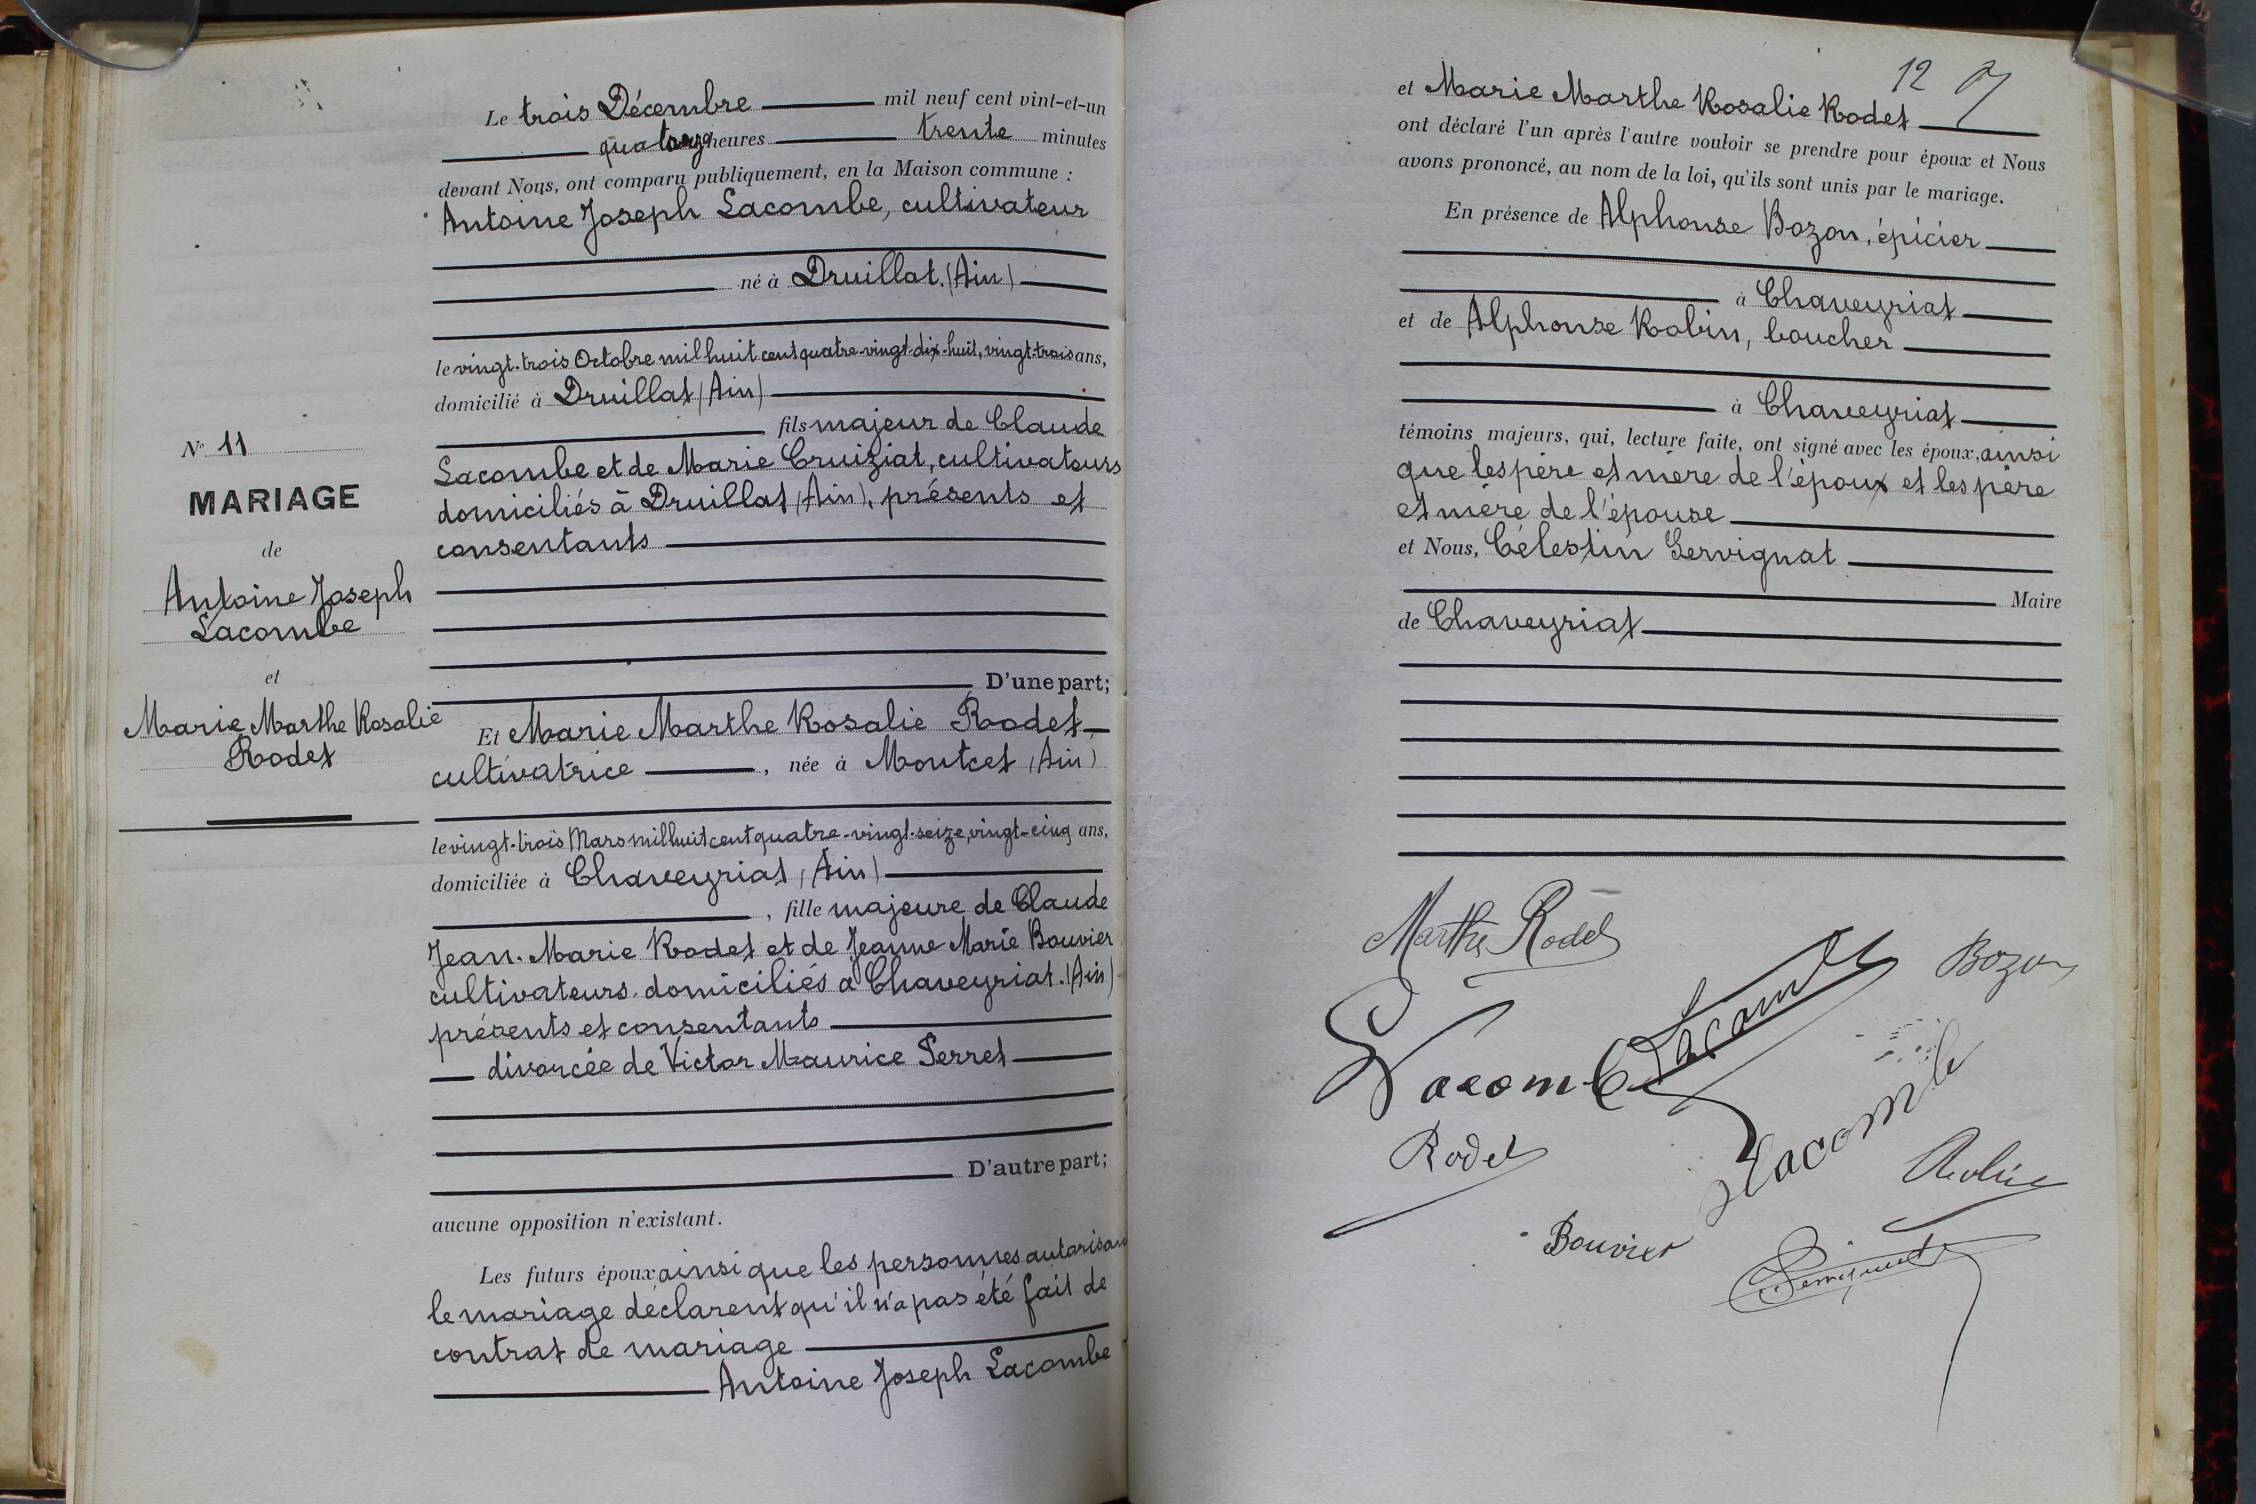 N° 11
MARIAGE
de
Antoine Joseph
Lacombe
et
Marie Marthe Rosalie
Rodet
Le trois Décembre mil neuf cent vint-et-un
quatorze heures trente minutes
devant Nous, ont comparu publiquement, en la Maison commune :
Antoine Joseph Lacombe, cultivateur
né à Druillat (Ain)
le vingt-trois Octobre mil huit cent quatre-vingt-dix-huit, vingt-trois ans,
domicilié à Druillat (Ain)
fils majeur de Claude
Lacombe et de Marie Cruiziat, cultivateurs
domiciliés à Druillat (Ain), présents et
consentants
D'une part;
Et Marie Marthe Rosalie Rodet
cultivatrice, née à Montcet (Ain)
le vingt-trois Mars mil huit cent quatre-vingt-seize, vingt-cinq ans,
domiciliée à Chaveyriat (Ain)
, fille majeure de Claude
Jean-Marie Rodet et de Jeanne Marie Bouvier
cultivateurs domiciliés à Chaveyriat (Ain)
présents et consentants
divorcée de Victor Maurice Perret
D'autre part;
aucune opposition n'existant.
Les futurs époux ainsi que les personnes autorisant
le mariage déclarent qu'il n'a pas été fait de
contrat de mariage
Antoine Joseph Lacombe
12
et Marie Marthe Rosalie Rodet
ont déclaré l'un après l'autre vouloir se prendre pour époux et Nous
avons prononcé, au nom de la loi, qu'ils sont unis par le mariage.
En présence de Alphonse Bozon, épicier
à Chaveyriat
et de Alphonse Robin, boucher
à Chaveyriat
témoins majeurs, qui, lecture faite, ont signé avec les époux, ainsi
que les père et mère de l'époux et les père
et mère de l'épouse
et Nous, Célestin Servignat
Maire
de Chaveyriat
Marthe Rodet
Lacombe
Bozon
Lacombe
Lacombe
Rodet
Robin
Bouvier
Servignat